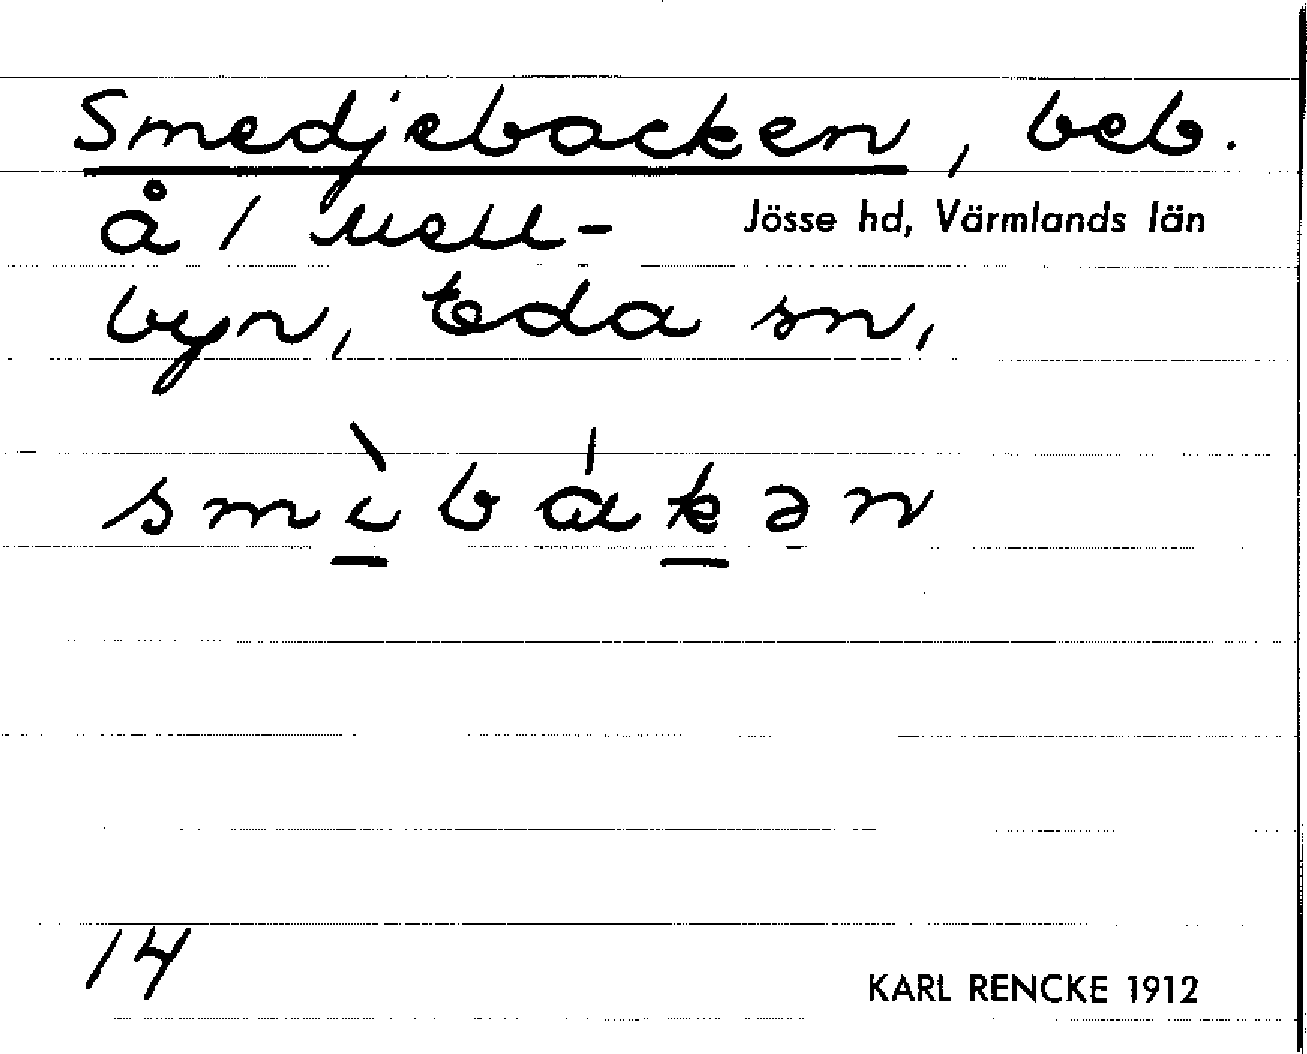 Smedjebacken, beb.
å / Mell-
Jösse hd, Värmlands län
byn, Eda sn,
smìbákən
14
KARL RENCKE 1912